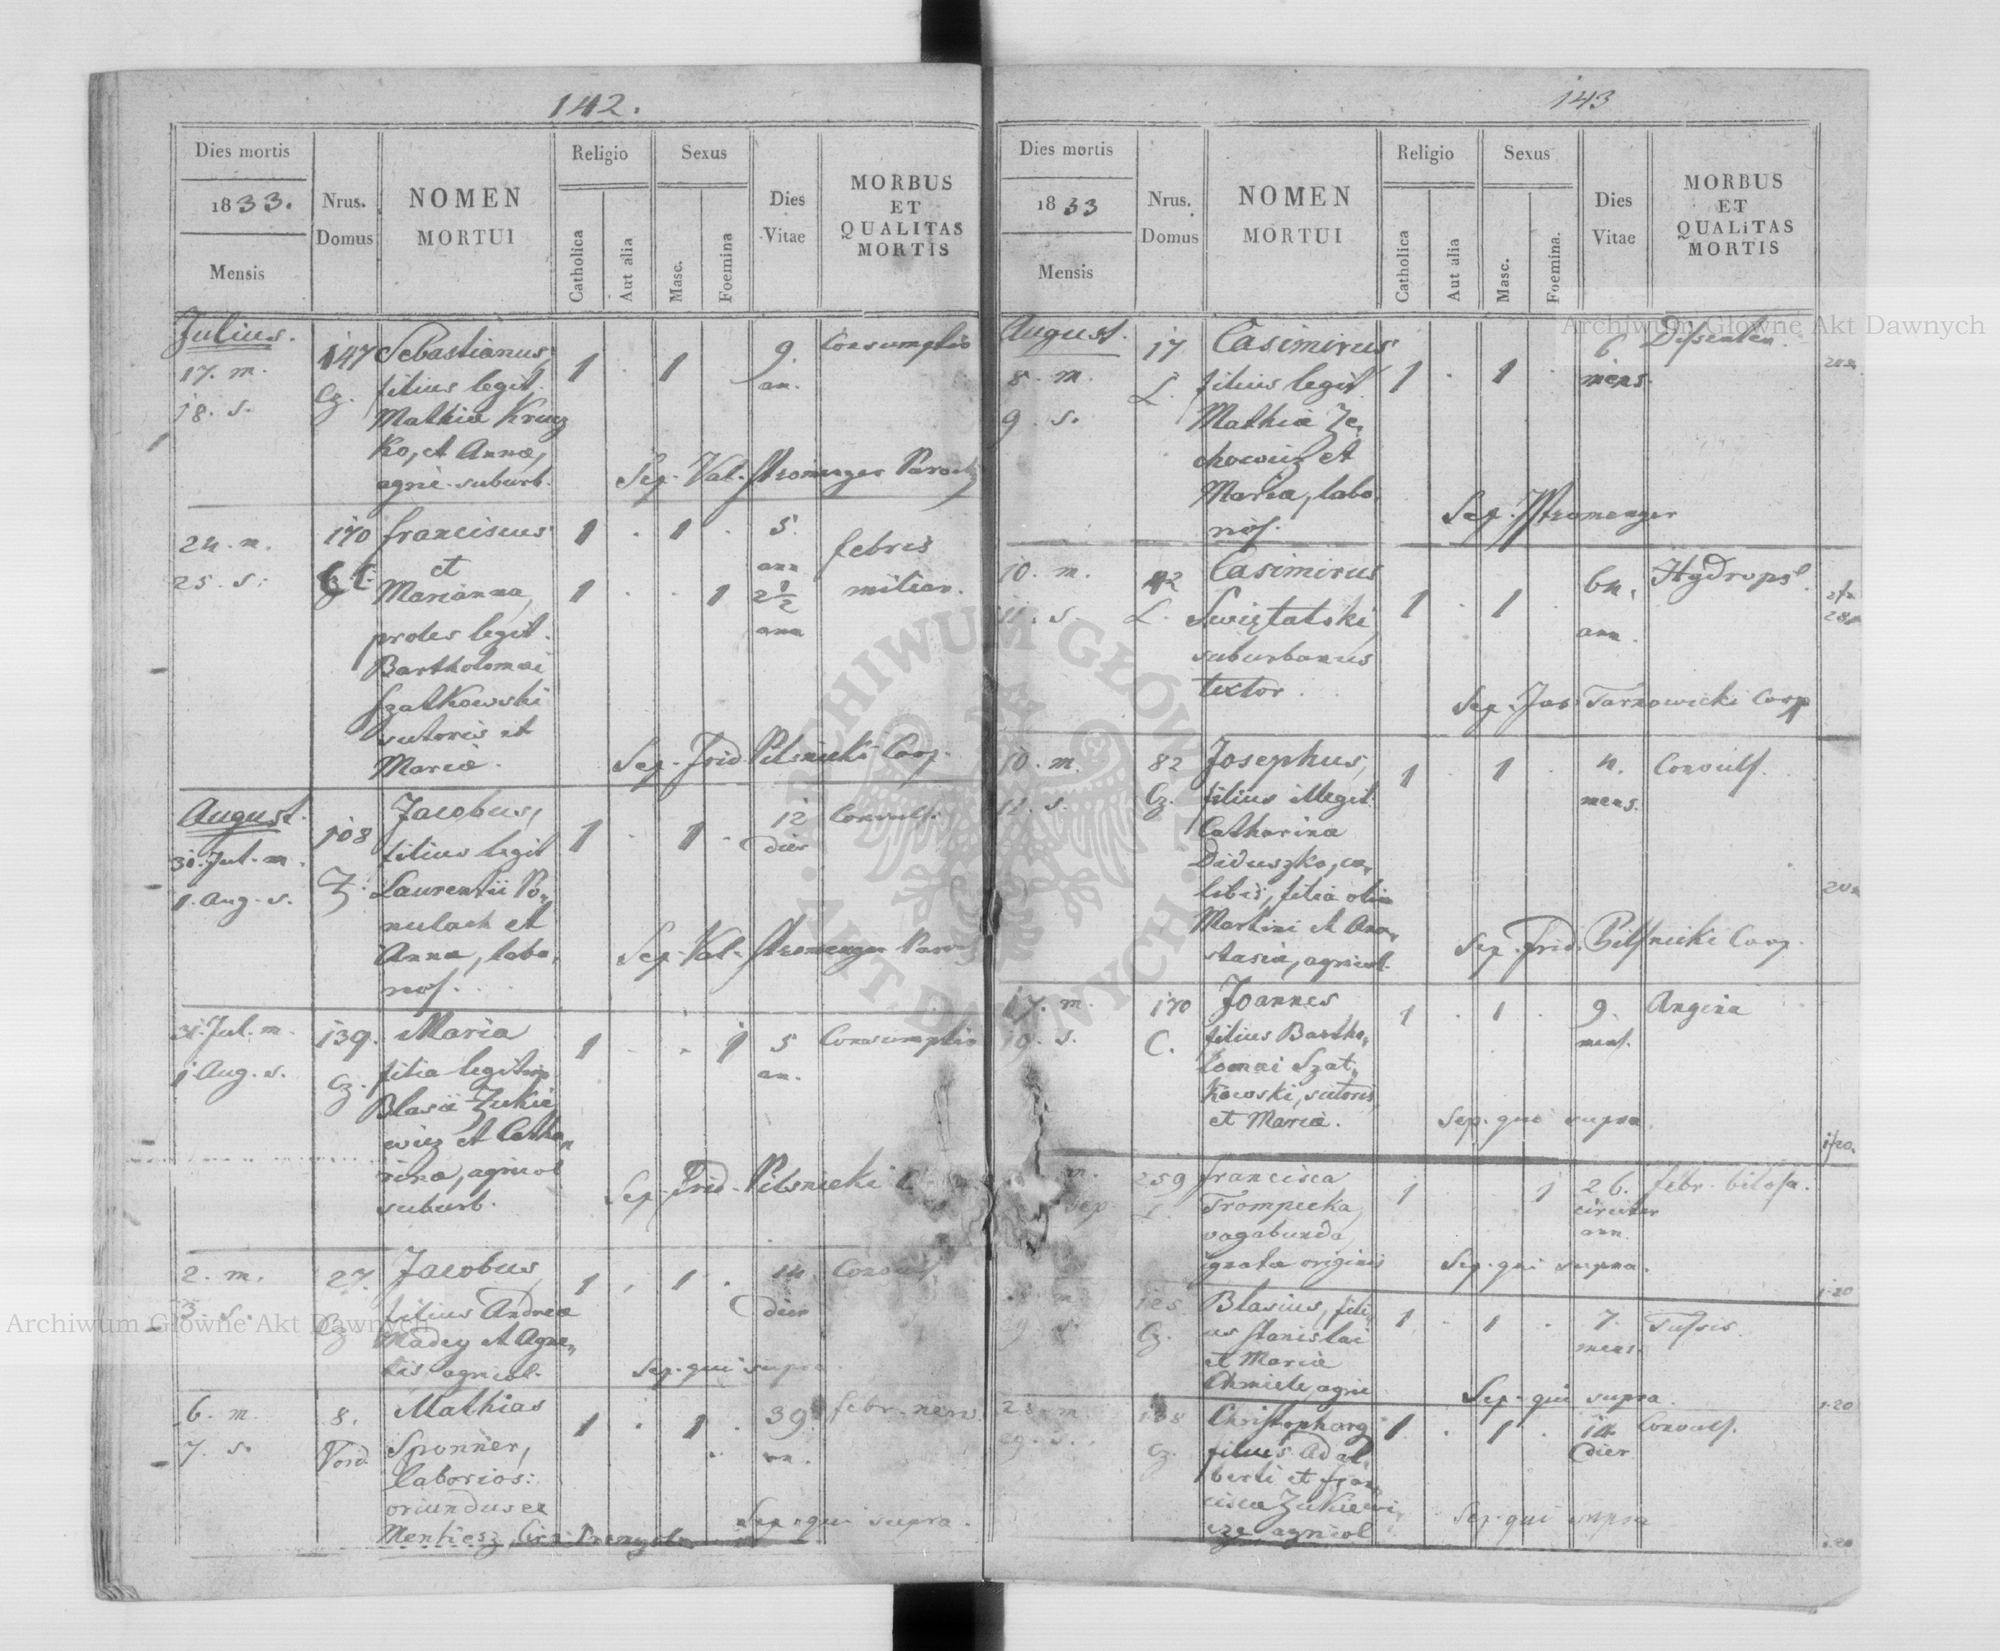 142.
Dies mortis
1833.
Mensis
Nrus.
Domus
NOMEN
MORTUI
Religio
Catholica
Aut alia
Sexus
Masc.
Foemina
Dies
Vitae
MORBUS
ET
QUALITAS
MORTIS
Julius.
17. m.
18. s.
147
Cz.
Sebastianus,
filius legit.
Mathiæ Krucz
ko, et Annæ,
agric. suburb.
1 . 1 .
9.
an.
Consumptio
Sep. Val. Stromenger Paroch
24. m.
25. s.
170
C.
Franciscus
et
Marianna,
proles legit.
Bartholomæi
Szatkowski
sutoris et
Mariæ.
1 . 1 .
1 . . 1
5.
ann
2 1/2
ann
febris
miliar.
Sep. Frid. Pilsnicki Coop.
August.
31. Jul. m.
1. Aug. s.
108
Z.
Jacobus,
filius legit
Laurentii Po-
nulach et
Annæ, labo-
rios.
1 . 1 .
12
dier
Convuls.
Sep. Val. Stromenger Paroch
31. Jul. m.
1 Aug. s.
139.
Cz.
Maria
filia legitima
Blasii Zukie
wicz et Catha-
rinæ, agricol
suburb.
1 . . 1
5
an.
Consumptio
Sep. Frid. Pilsnicki C
2. m.
3. s.
27.
Cz
Jacobus,
filius Andreæ
Madey et Agne-
tis agricol.
1 . 1 .
14
dier
Convuls.
Sep. qui supra
6. m.
7. s.
8.
Mathias
Sponner,
laborios:
oriundus ex
1 . 1 .
39.
an.
febr. nerv.
Sep. qui supra.
143
Dies mortis
1833
Mensis
Nrus.
Domus
NOMEN
MORTUI
Religio
Catholica
Aut alia
Sexus
Masc.
Foemina.
Dies
Vitae
MORBUS
ET
QUALITAS
MORTIS
August.
8. m.
9. s.
17
L.
Casimirus
filius legit.
Mathiæ Ze-
chowicz et
Mariæ, labo-
rios.
1 . 1 .
6
mens.
Dysenter.
Sep. Stromenger
10. m.
11. s.
42
L.
Casimirus
Swiętalski,
suburbanus
textor.
1 . 1 .
64.
ann.
Hydrops.
Sep. Jos. Tarnowicki Coop
10. m.
12. s.
82
Cz.
Josephus,
filius illegit.
Catharinæ
Diduszko, cæ-
libis, filia olim
Martini et Ana-
stasiæ, agricol.
1 . 1 .
4.
mens.
Convuls.
Sep. Frid. Pilsnicki Coop.
17. m.
19. s.
170
C.
Joannes
filius Bartho-
lomæi Szat-
kowski, sutoris,
et Mariæ.
1 . 1 .
9.
mens.
Angina
Sep. qui supra
259
Francisca
Trompecka,
vagabunda,
ignotæ originis
1 . . 1
26.
circiter
ann.
febr. bilosa.
Sep. qui supra.
125
Cz.
Blasius, fili-
us Stanislai
et Mariæ
Chmiele, agric
1 . 1 .
7.
mens.
Tussis.
Sep. qui supra
28. m
29. s.
Cz.
Christophorus
filius Adal-
berti et Fran-
ciscæ Zukiewi-
cze, agricol
1 . 1 .
14
dier
Convuls.
Sep. qui supra
1.20
Archiwum Główne Akt Dawnych
Archiwum Główne Akt Dawnych
ARCHIWUM GŁÓWNE AKT DAWNYCH